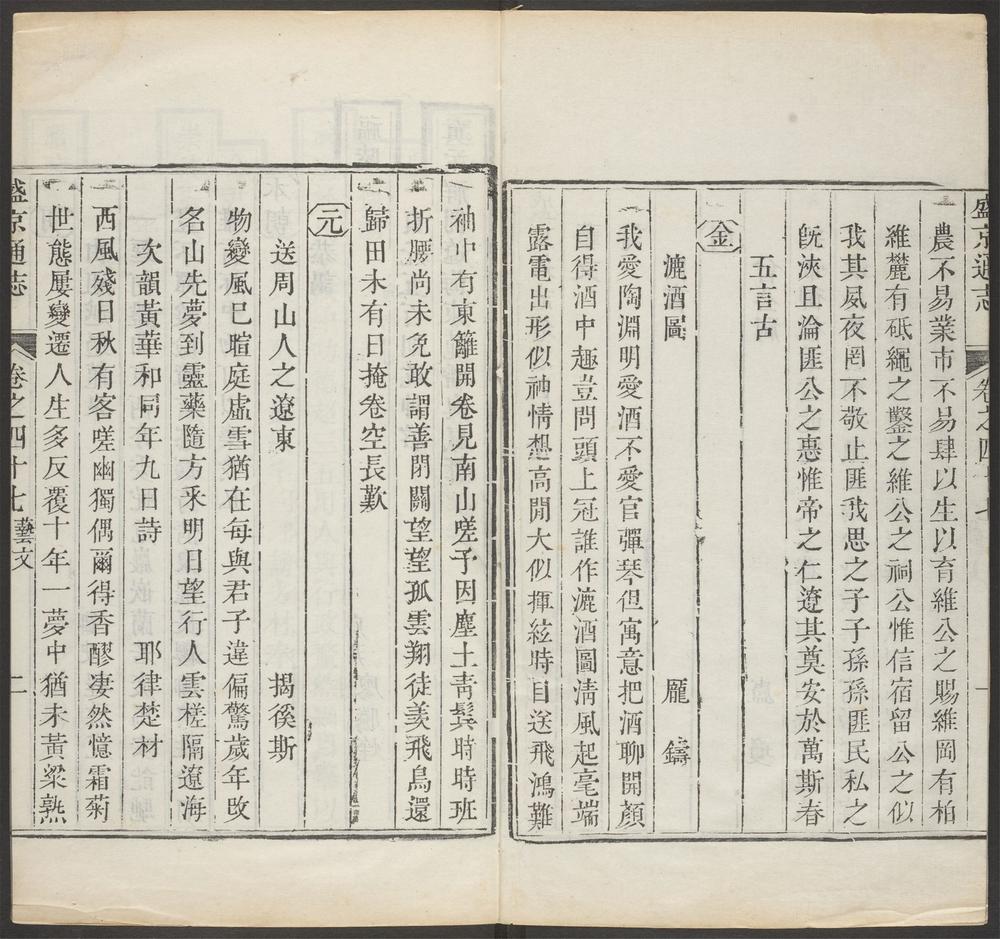 盛京通志 卷之四十七 一
農不易業市不易肆以生以育維公之賜維岡有柏
維麓有砥繩之鑿之維公之祠公惟信宿留公之似
我其夙夜罔不敬止匪我思之子子孫孫匪民私之
旣浹且淪匪公之惠惟帝之仁遼其奠安於萬斯春
五言古
金
漉酒圖 龐鑄
我愛陶淵明愛酒不愛官彈琴但寓意把酒聊開顏
自得酒中趣豈問頭上冠誰作漉酒圖淸風起毫端
露電出形似神情想高閒大似揮絃時目送飛鴻難
袖中有東籬開卷見南山嗟予因塵土靑鬂時時班
折腰尚未免敢謂善閉關望望孤雲翔徒羨飛鳥還
歸田未有日掩卷空長歎
元
送周山人之遼東 揭徯斯
物變風已暄庭虛雪猶在每與君子違偏驚歲年改
名山先夢到靈藥隨方釆明日望行人雲槎隔遼海
次韻黃華和同年九日詩 耶律楚材
西風殘日秋有客嗟幽獨偶爾得香醪凄然憶霜菊
世態屢變遷人生多反覆十年一夢中猶未黃粱熟
盛京通志 卷之四十七 藝文 二